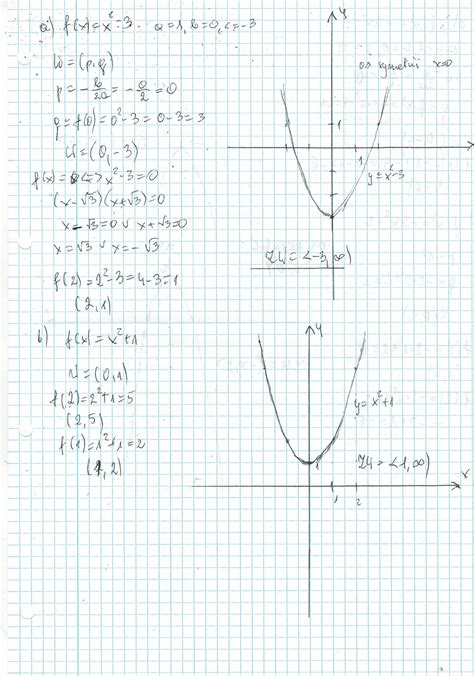 a) f(x) = x² - 3   a = 1, b = 0, c = -3
W = (p, q)
p = -b/2a = -0/2 = 0
q = f(0) = 0² - 3 = 0 - 3 = 3
W = (0, -3)
f(x) = 0 <=> x² - 3 = 0
(x - √3)(x + √3) = 0
x - √3 = 0 ∨ x + √3 = 0
x = √3 ∨ x = -√3
f(2) = 2² - 3 = 4 - 3 = 1
(2, 1)
y
oś symetrii x = 0
1
1
y = x² - 3
ZW = <-3, ∞)
b) f(x) = x² + 1
W = (0, 1)
f(2) = 2² + 1 = 5
(2, 5)
f(1) = 1² + 1 = 2
(1, 2)
y
y = x² + 1
1
ZW = <1, ∞)
x
1 2